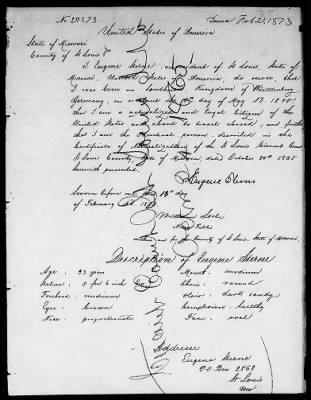 No 29273
Issued Feb 21, 1873
United States of America
State of Missouri
County of St Louis
I, Eugene Sterne, a resident of St Louis, State of
Missouri, United States of America, do swear, that
I was born in Kingdom of Wurttemberg
Germany, on or about the day of May AD 1840
that I am a naturalized and legal Citizen of the
United States and about to travel abroad, and further
that I am the identical person, described in the
Certificate of Naturalization of the St Louis Circuit Court
St Louis County, State of Missouri, date October 1865
herewith presented.
Eugene Sterne
Sworn before me this 18th day
of February
Notary Public
within and for the County of St Louis, State of Missouri.
Description of Eugene Sterne
Age : 33 years
Stature : 5 feet 6 inch
Forehead : medium
Eyes : brown
Nose : proportionate
Mouth : medium
Chin : round
Hair : dark sandy
Complexion : healthy
Face : oval
Addresse
Eugene Sterne
PO Box 2868
St Louis
Mo